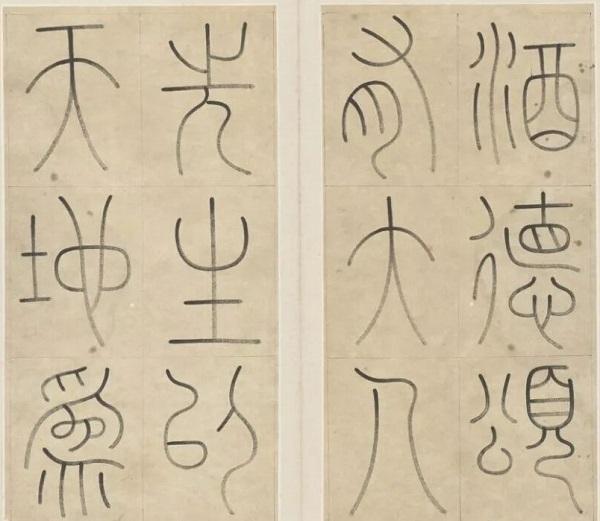 酒德頌
有大人
先生以
天地爲